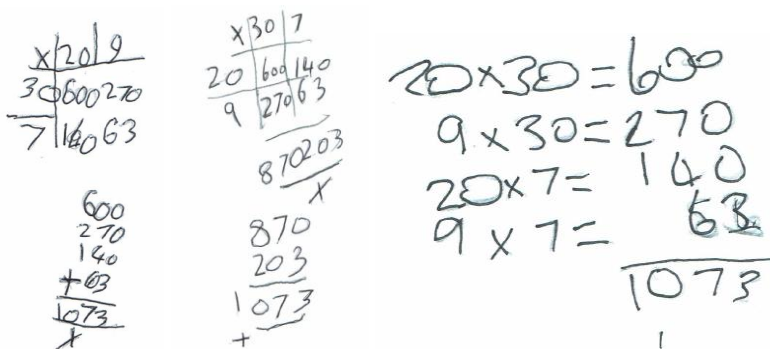 x 20 9
30 600 270
7 140 63
600
270
140
+ 63
1073
x 30 7
20 600 140
9 270 63
870 203
870
203
1073
+
20 x 30 = 600
9 x 30 = 270
20 x 7 = 140
9 x 7 = 63
1073
1